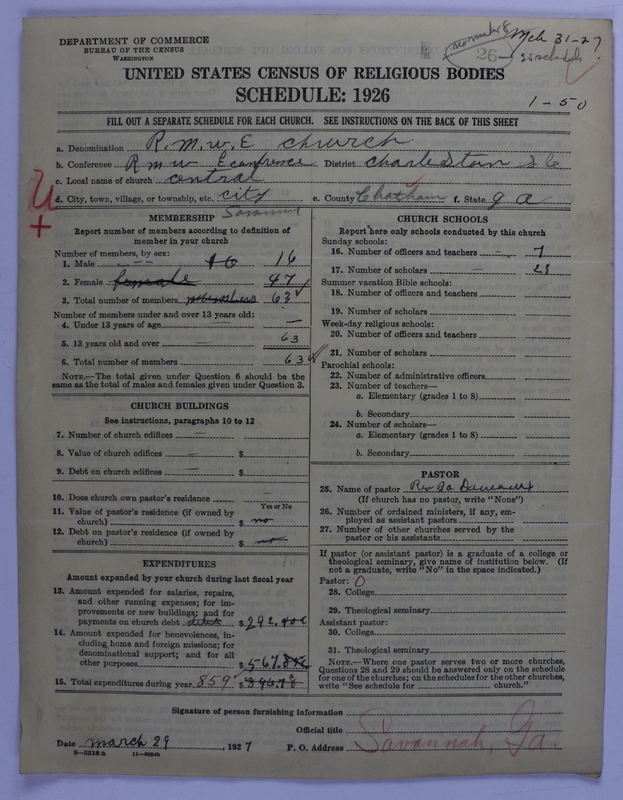 DEPARTMENT OF COMMERCE
BUREAU OF THE CENSUS
WASHINGTON
Mch 31-27
26
UNITED STATES CENSUS OF RELIGIOUS BODIES
SCHEDULE: 1926
1-50
FILL OUT A SEPARATE SCHEDULE FOR EACH CHURCH. SEE INSTRUCTIONS ON THE BACK OF THIS SHEET
a. Denomination R. M. W. E church
b. Conference R m w E conference District Charleston S C
c. Local name of church central
d. City, town, village, or township, etc. city e. County Chatham f. State g a
Savannah
MEMBERSHIP
Report number of members according to definition of
member in your church
Number of members, by sex:
1. Male 16 16
2. Female female 47
3. Total number of members 63
Number of members under and over 13 years old:
4. Under 13 years of age —
5. 13 years old and over 63
6. Total number of members 63
NOTE.—The total given under Question 6 should be the
same as the total of males and females given under Question 3.
CHURCH BUILDINGS
See instructions, paragraphs 10 to 12
7. Number of church edifices —
8. Value of church edifices — $
9. Debt on church edifices — $
10. Does church own pastor's residence —
Yes or No
11. Value of pastor's residence (if owned by
church) $ no
12. Debt on pastor's residence (if owned by
church) $ no
EXPENDITURES
Amount expended by your church during last fiscal year
13. Amount expended for salaries, repairs,
and other running expenses; for im-
provements or new buildings; and for
payments on church debt $292.40c
14. Amount expended for benevolences, in-
cluding home and foreign missions; for
denominational support; and for all
other purposes $567.
15. Total expenditures during year 859 $
CHURCH SCHOOLS
Report here only schools conducted by this church
Sunday schools:
16. Number of officers and teachers 7
17. Number of scholars — 23
Summer vacation Bible schools:
18. Number of officers and teachers
19. Number of scholars
Week-day religious schools:
20. Number of officers and teachers
21. Number of scholars
Parochial schools:
22. Number of administrative officers
23. Number of teachers—
a. Elementary (grades 1 to 8)
b. Secondary
24. Number of scholars—
a. Elementary (grades 1 to 8)
b. Secondary
PASTOR
25. Name of pastor Rev
(If church has no pastor, write "None")
26. Number of ordained ministers, if any, em-
ployed as assistant pastors
27. Number of other churches served by the
pastor or his assistants
If pastor (or assistant pastor) is a graduate of a college or
theological seminary, give name of institution below. (If
not a graduate, write "No" in the space indicated.)
Pastor: 0
28. College
29. Theological seminary
Assistant pastor:
30. College
31. Theological seminary
NOTE.—Where one pastor serves two or more churches,
Questions 28 and 29 should be answered only on the schedule
for one of the churches; on the schedules for the other churches,
write "See schedule for church."
Signature of person furnishing information
Official title
Date march 29, 1927 P. O. Address Savannah, Ga.
8—5318 b